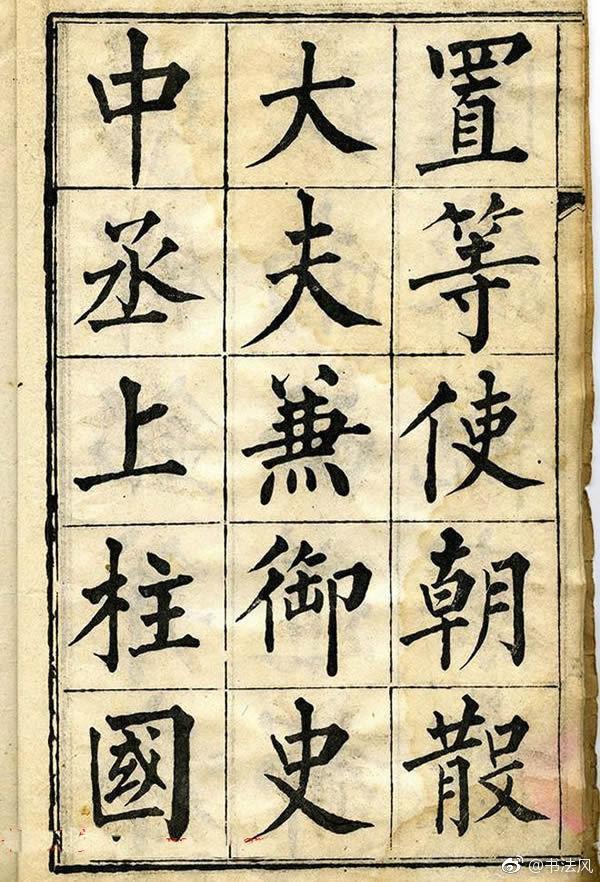 置等使朝散
大夫兼御史
中丞上柱國
@书法风